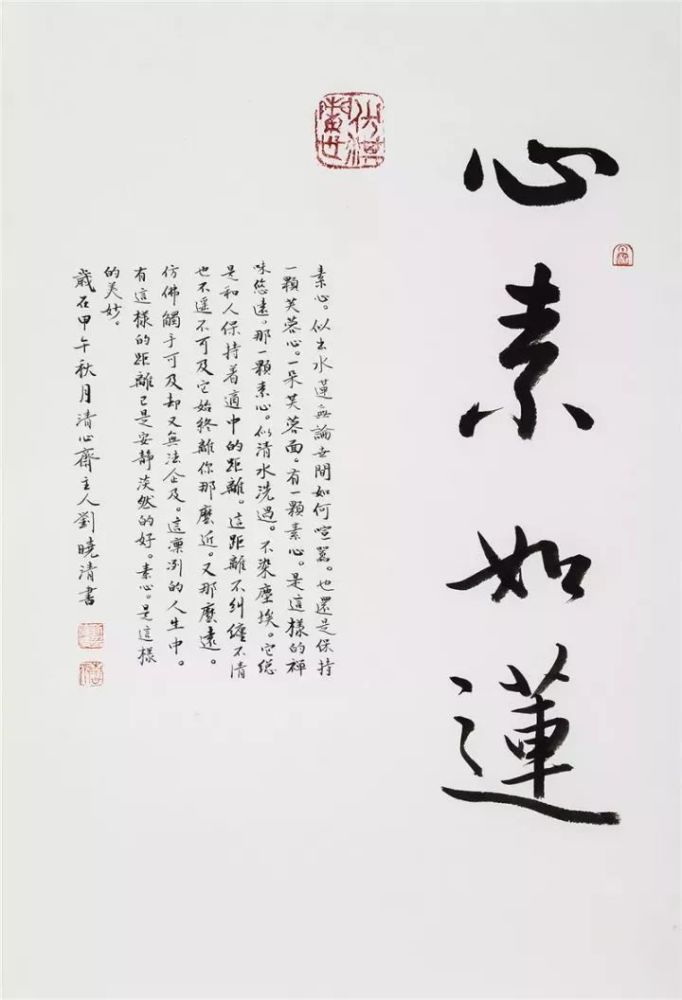 心素如蓮
素心。似出水蓮無論世間如何喧嚣。也還是保持
一顆芙蓉心。一朵芙蓉面。有一顆素心。是這樣的禅
味悠遠。那一顆素心。似清水洗過。不染塵埃。它總
是和人保持着適中的距離。這距離不糾纏不清
也不遥不可及它始終離你那麼近。又那麼遠。
仿佛觸手可及却又無法企及。這凛冽的人生中。
有這樣的距離已是安静淡然的好。素心。是這樣
的美妙。
歲在甲午秋月清心齋主人劉曉清書